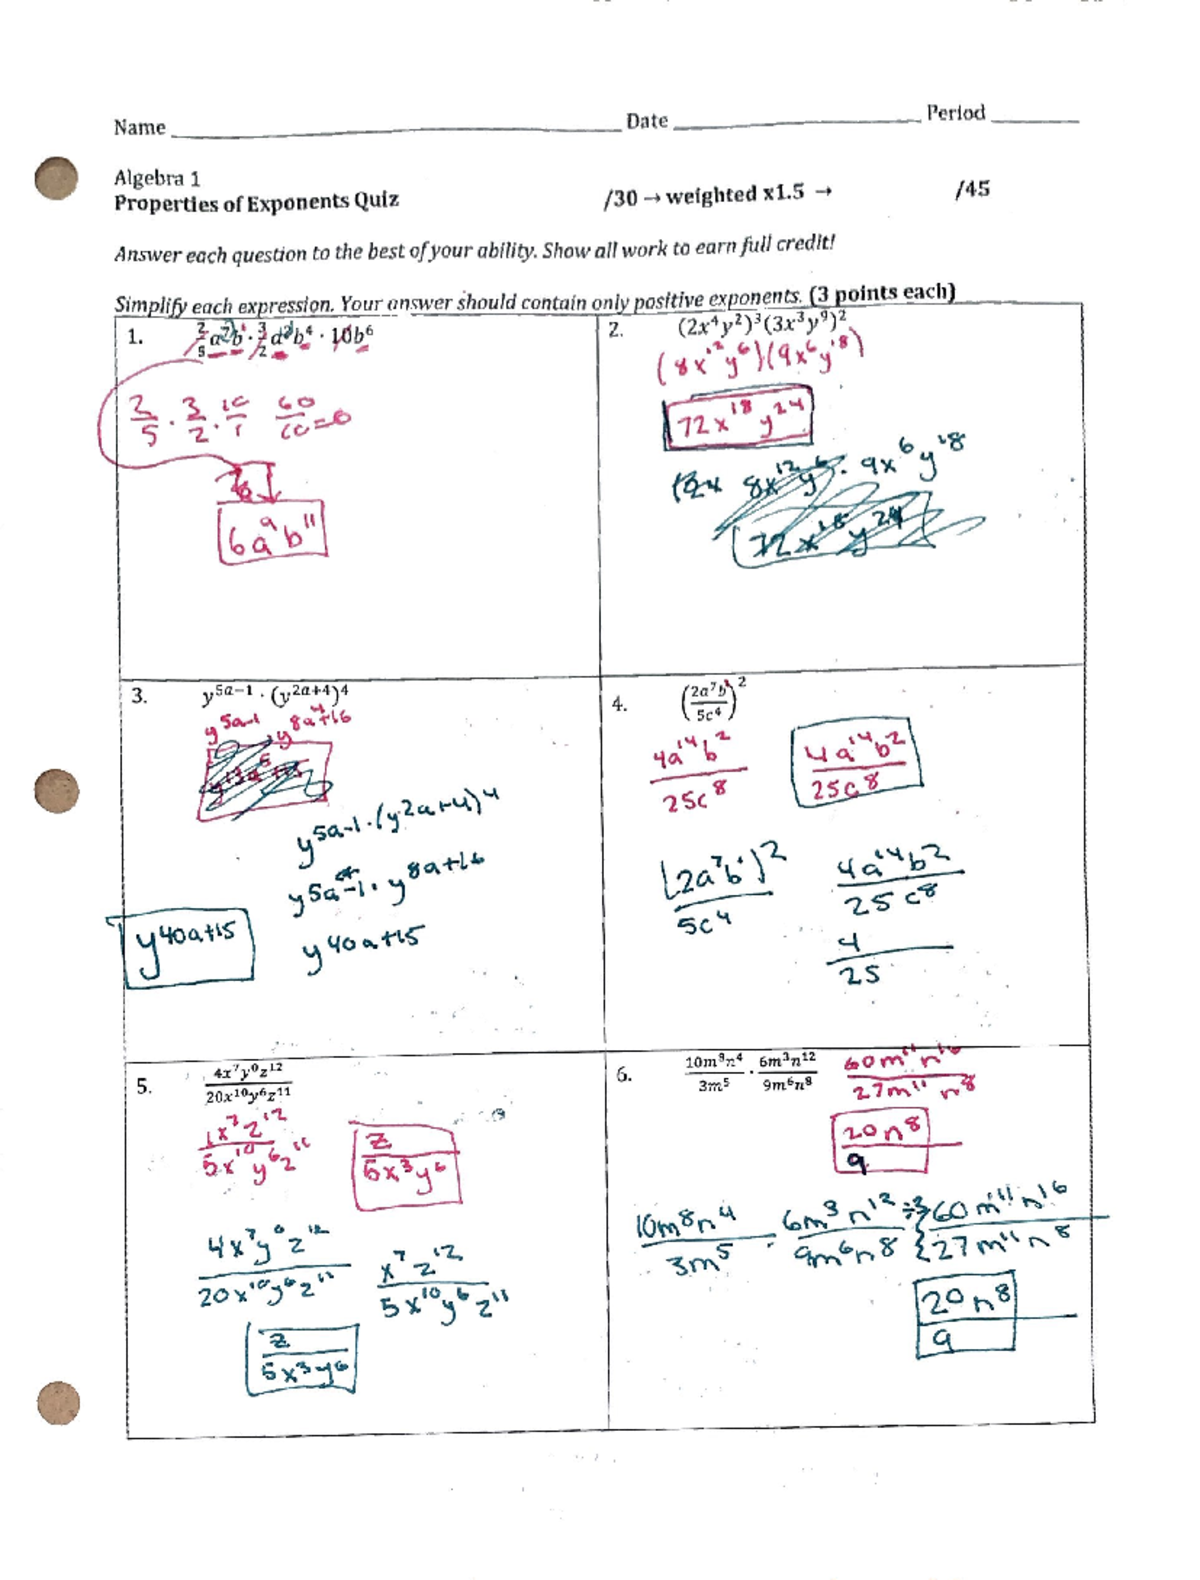 Name ____ Date ____ Period ____
Algebra 1
Properties of Exponents Quiz /30 → weighted x1.5 → /45
Answer each question to the best of your ability. Show all work to earn full credit!
Simplify each expression. Your answer should contain only positive exponents. (3 points each)
1. 2/5 a⁷b · 3/2 a²b⁴ · 10b⁶
2/5 · 3/2 · 10/1 60/10=6
6a⁹b¹¹
2. (2x⁴y²)³(3x³y⁹)²
(8x¹²y⁶)(9x⁶y¹⁸)
72x¹⁸y²⁴
8x¹²y⁶ · 9x⁶y¹⁸
72x¹⁸y²⁴
3. y⁵ᵃ⁻¹ · (y²ᵃ⁺⁴)⁴
y⁵ᵃ⁻¹ · y⁸ᵃ⁺¹⁶
y⁵ᵃ⁻¹ · (y²ᵃ⁺⁴)⁴
y⁵ᵃ⁻¹ · y⁸ᵃ⁺¹⁶
y⁴⁰ᵃ⁺¹⁵
y⁴⁰ᵃ⁺¹⁵
4. (2a⁷b/5c⁴)²
4a¹⁴b²/25c⁸ 4a¹⁴b²/25c⁸
(2a⁷b¹)²/5c⁴ 4a¹⁴b²/25c⁸
4/25
5. 4x⁷y⁰z¹²/20x¹⁰y⁶z¹¹
1x⁷z¹²/5x¹⁰y⁶z¹¹ z/5x³y⁶
4x⁷y⁰z¹²/20x¹⁰y⁶z¹¹ x⁷z¹²/5x¹⁰y⁶z¹¹
z/5x³y⁶
6. 10m⁸n⁴/3m⁵ · 6m³n¹²/9m⁶n⁸ 60m¹¹n¹⁶/27m¹¹n⁸
20n⁸/9
10m⁸n⁴/3m⁵ · 6m³n¹²/9m⁶n⁸ ÷3 60m¹¹n¹⁶/27m¹¹n⁸
20n⁸/9